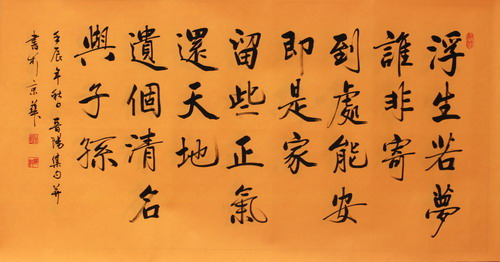 浮生若夢
誰非寄
到處能安
即是家
留些正氣
還天地
遺個清名
與子孫
壬辰年秋日晉陽集句并
書於京華